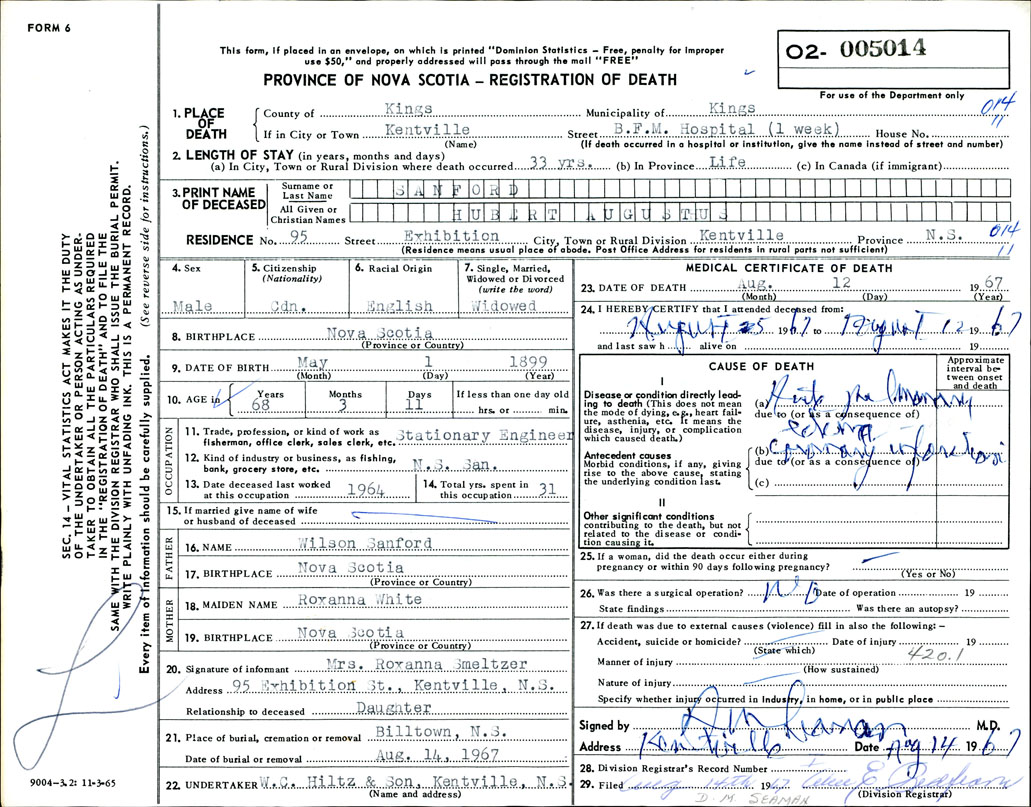 FORM 6
This form, if placed in an envelope, on which is printed "Dominion Statistics – Free, penalty for improper
use $50," and properly addressed will pass through the mail "FREE"
PROVINCE OF NOVA SCOTIA – REGISTRATION OF DEATH
02- 005014
For use of the Department only
SEC. 14 – VITAL STATISTICS ACT MAKES IT THE DUTY
OF THE UNDERTAKER OR PERSON ACTING AS UNDER-
TAKER TO OBTAIN ALL THE PARTICULARS REQUIRED
IN THE "REGISTRATION OF DEATH" AND TO FILE THE
SAME WITH THE DIVISION REGISTRAR WHO SHALL ISSUE THE BURIAL PERMIT.
WRITE PLAINLY WITH UNFADING INK. THIS IS A PERMANENT RECORD.
Every item of information should be carefully supplied. (See reverse side for instructions.)
1. PLACE OF DEATH
County of Kings Municipality of Kings 014
11
If in City or Town Kentville Street B.F.M. Hospital (1 week) House No.
(Name) (If death occurred in a hospital or institution, give the name instead of street and number)
2. LENGTH OF STAY (in years, months and days)
(a) In City, Town or Rural Division where death occurred 33 yrs. (b) In Province Life (c) In Canada (if immigrant)
3. PRINT NAME OF DECEASED
Surname or Last Name SANFORD
All Given or Christian Names HUBERT AUGUSTUS
RESIDENCE No. 95 Street Exhibition City, Town or Rural Division Kentville Province N.S. 014
11
(Residence means usual place of abode. Post Office Address for residents in rural parts not sufficient)
4. Sex
Male
5. Citizenship
(Nationality)
Cdn.
6. Racial Origin
English
7. Single, Married,
Widowed or Divorced
(write the word)
Widowed
8. BIRTHPLACE Nova Scotia
(Province or Country)
9. DATE OF BIRTH May 1 1899
(Month) (Day) (Year)
10. AGE in
Years Months Days If less than one day old
68 3 11 hrs. or min.
OCCUPATION
11. Trade, profession, or kind of work as
fisherman, office clerk, sales clerk, etc. Stationary Engineer
12. Kind of industry or business, as fishing,
bank, grocery store, etc. N.S. San.
13. Date deceased last worked
at this occupation 1964
14. Total yrs. spent in
this occupation 31
15. If married give name of wife
or husband of deceased
FATHER
16. NAME Wilson Sanford
17. BIRTHPLACE Nova Scotia
(Province or Country)
MOTHER
18. MAIDEN NAME Roxanna White
19. BIRTHPLACE Nova Scotia
(Province or Country)
20. Signature of informant Mrs. Roxanna Smeltzer
Address 95 Exhibition St., Kentville, N.S.
Relationship to deceased Daughter
21. Place of burial, cremation or removal Billtown, N.S.
Date of burial or removal Aug. 14, 1967
22. UNDERTAKER W.C. Hiltz & Son, Kentville, N.S.
(Name and address)
9004–3.2: 11-3-65
MEDICAL CERTIFICATE OF DEATH
23. DATE OF DEATH Aug. 12 1967
(Month) (Day) (Year)
24. I HEREBY CERTIFY that I attended deceased from:
August 5 1967 to August 12 1967
and last saw h alive on 19
CAUSE OF DEATH
Approximate
interval be-
tween onset
and death
I
Disease or condition directly lead-
ing to death (This does not mean
the mode of dying, e.g., heart fail-
ure, asthenia, etc. It means the
disease, injury, or complication
which caused death.)
(a) Acute
due to (or as a consequence of)
Antecedent causes
Morbid conditions, if any, giving
rise to the above cause, stating
the underlying condition last.
(b) coronary infarction
due to (or as a consequence of)
(c)
II
Other significant conditions
contributing to the death, but not
related to the disease or condi-
tion causing it.
25. If a woman, did the death occur either during
pregnancy or within 90 days following pregnancy?
(Yes or No)
26. Was there a surgical operation? No Date of operation 19
State findings Was there an autopsy?
27. If death was due to external causes (violence) fill in also the following: –
Accident, suicide or homicide? Date of injury 19
(State which) 420.1
Manner of injury
(How sustained)
Nature of injury
Specify whether injury occurred in Industry, in home, or in public place
Signed by D M Seaman M.D.
Address Kentville Date Aug 14 1967
28. Division Registrar's Record Number
29. Filed Aug 14th 1967
(Division Registrar)
D. M. SEAMAN